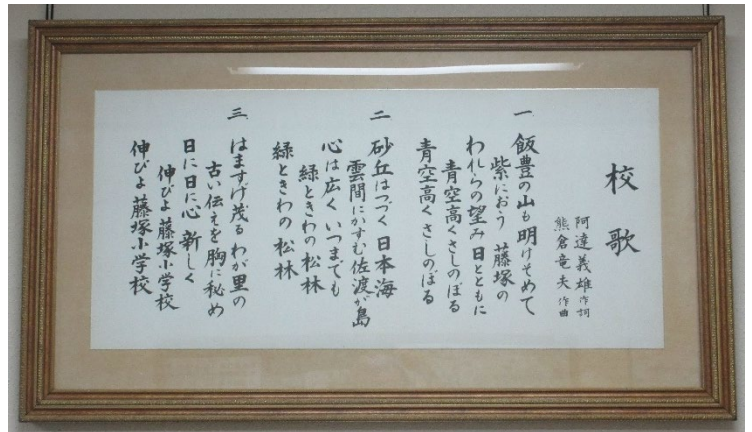 校歌
阿達義雄 作詞
熊倉竜夫 作曲
一 飯豊の山も明けそめて
紫におう 藤塚の
われらの望み日とともに
青空高くさしのぼる
青空高くさしのぼる
二 砂丘はつづく日本海
雲間にかすむ佐渡が島
心は広くいつまでも
緑ときわの松林
緑ときわの松林
三 はますげ茂るわが里の
古い伝えを胸に秘め
日に日に心新しく
伸びよ藤塚小学校
伸びよ藤塚小学校